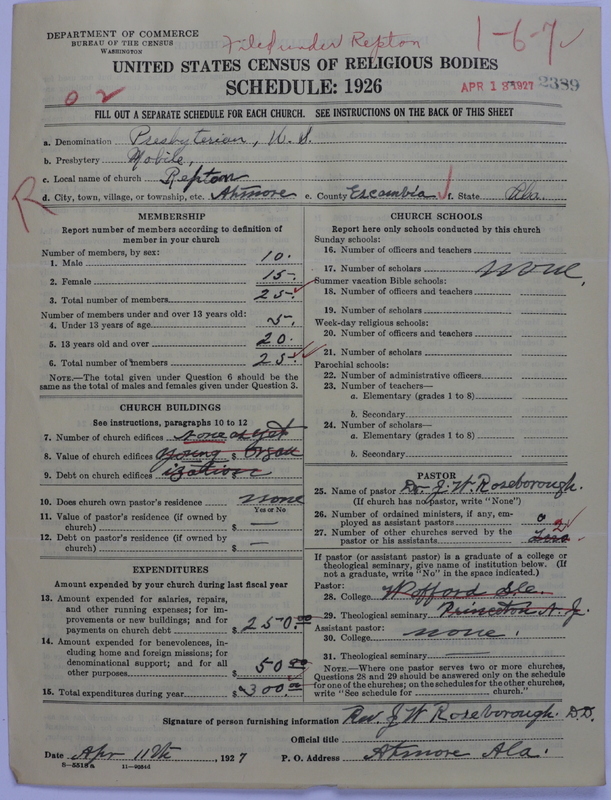 DEPARTMENT OF COMMERCE
BUREAU OF THE CENSUS
WASHINGTON
Filed under Repton
1-6-7
UNITED STATES CENSUS OF RELIGIOUS BODIES
SCHEDULE: 1926
APR 18 1927 2389
0 2
FILL OUT A SEPARATE SCHEDULE FOR EACH CHURCH. SEE INSTRUCTIONS ON THE BACK OF THIS SHEET
a. Denomination Presbyterian, U. S.
b. Presbytery Mobile,
c. Local name of church Repton
R
d. City, town, village, or township, etc. Atmore e. County Escambia f. State Ala.
MEMBERSHIP
Report number of members according to definition of
member in your church
Number of members, by sex:
1. Male 10.
2. Female 15-.
3. Total number of members 25-.
Number of members under and over 13 years old:
4. Under 13 years of age 5-.
5. 13 years old and over 20.
6. Total number of members 25-.
NOTE.—The total given under Question 6 should be
the same as the total of males and females given under Question 3.
CHURCH BUILDINGS
See instructions, paragraphs 10 to 12
7. Number of church edifices none as yet
8. Value of church edifices $ young Organ
9. Debt on church edifices $ ization
10. Does church own pastor's residence none
Yes or No
11. Value of pastor's residence (if owned by
church) $ —
12. Debt on pastor's residence (if owned by
church) $ —
EXPENDITURES
Amount expended by your church during last fiscal year
13. Amount expended for salaries, repairs,
and other running expenses; for im-
provements or new buildings; and for
payments on church debt $ 250.00
14. Amount expended for benevolences, in-
cluding home and foreign missions; for
denominational support; and for all
other purposes $ 50.00
15. Total expenditures during year $ 300.00
CHURCH SCHOOLS
Report here only schools conducted by this church
Sunday schools:
16. Number of officers and teachers
17. Number of scholars none,
Summer vacation Bible schools:
18. Number of officers and teachers
19. Number of scholars
Week-day religious schools:
20. Number of officers and teachers
21. Number of scholars
Parochial schools:
22. Number of administrative officers
23. Number of teachers—
a. Elementary (grades 1 to 8)
b. Secondary
24. Number of scholars—
a. Elementary (grades 1 to 8)
b. Secondary
PASTOR
25. Name of pastor Dr. J. W. Roseborough.
(If church has no pastor, write "None")
26. Number of ordained ministers, if any, em-
ployed as assistant pastors 0
27. Number of other churches served by the
pastor or his assistants 2
If pastor (or assistant pastor) is a graduate of a college or
theological seminary, give name of institution below. (If
not a graduate, write "No" in the space indicated.)
Pastor:
28. College Wofford S.C.
29. Theological seminary Princeton N. J.
Assistant pastor:
30. College none.
31. Theological seminary
NOTE.—Where one pastor serves two or more churches,
Questions 28 and 29 should be answered only on the schedule
for one of the churches; on the schedules for the other churches,
write "See schedule for church."
Signature of person furnishing information Rev. J. W. Roseborough. D.D.
Official title
Date Apr 11th, 1927 P. O. Address Atmore Ala.